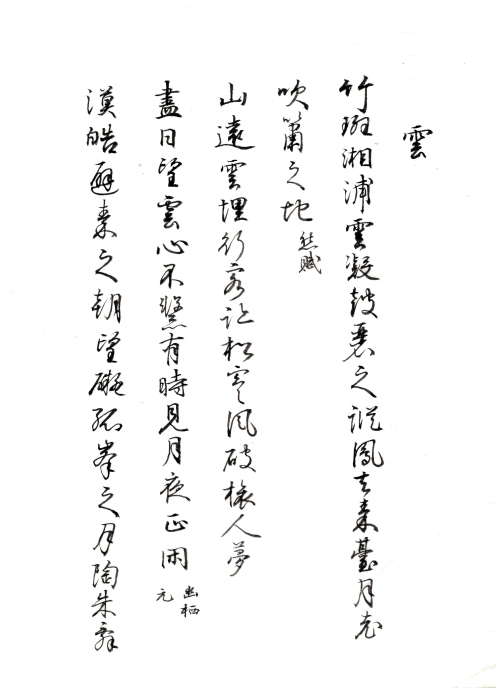 雲
竹斑湘浦雲凝鼓瑟之蹤鳳去秦臺月老
吹簫之地 愁賦
山遠雲埋行客跡松寒風破旅人夢
盡日望雲心不繫有時見月夜正閑 幽栖 元
漢皓避秦之朝望礙孤峯之月陶朱辭